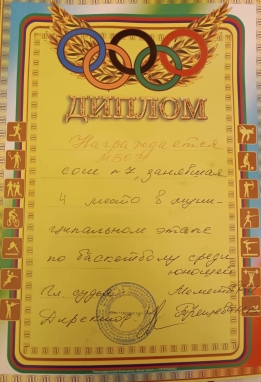 ДИПЛОМ
Награждается
МБОУ
сош №7, занявшая
4 место в муни-
ципальном этапе
по баскетболу среди
юношей
Гл. судья
Директор